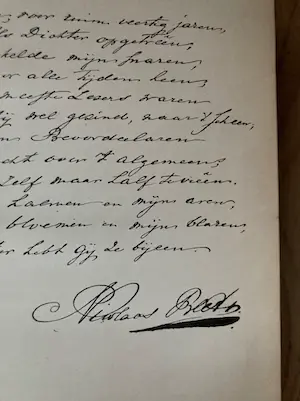 , voor ruim veertig jaren,
Dichter opgetreên,
mijn snaren,
alle tijden heen;
meeste Lezers waren
mij wel gezind, naar 't scheen;
Beoordeelaren
over 't algemeen;
Zelf maar half tevreên.
halmen en mijn aren,
bloemen en mijn blaren,
hebt Gij, ze bijeen.
Nicolaas Beets.